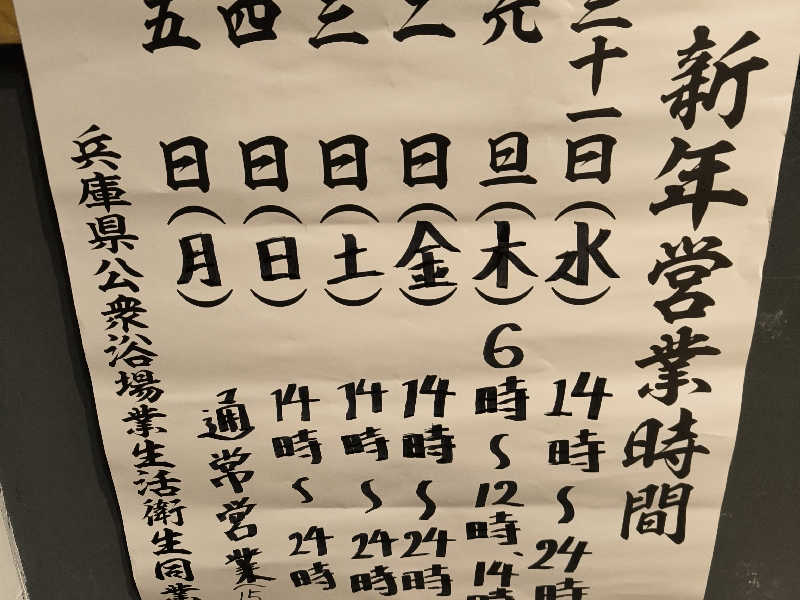 新年営業時間
三十一日(水)14時〜24時
元旦(木)6時〜12時、14時
二日(金)14時〜24時
三日(土)14時〜24時
四日(日)14時〜24時
五日(月)通常営業(15
兵庫県公衆浴場業生活衛生同業